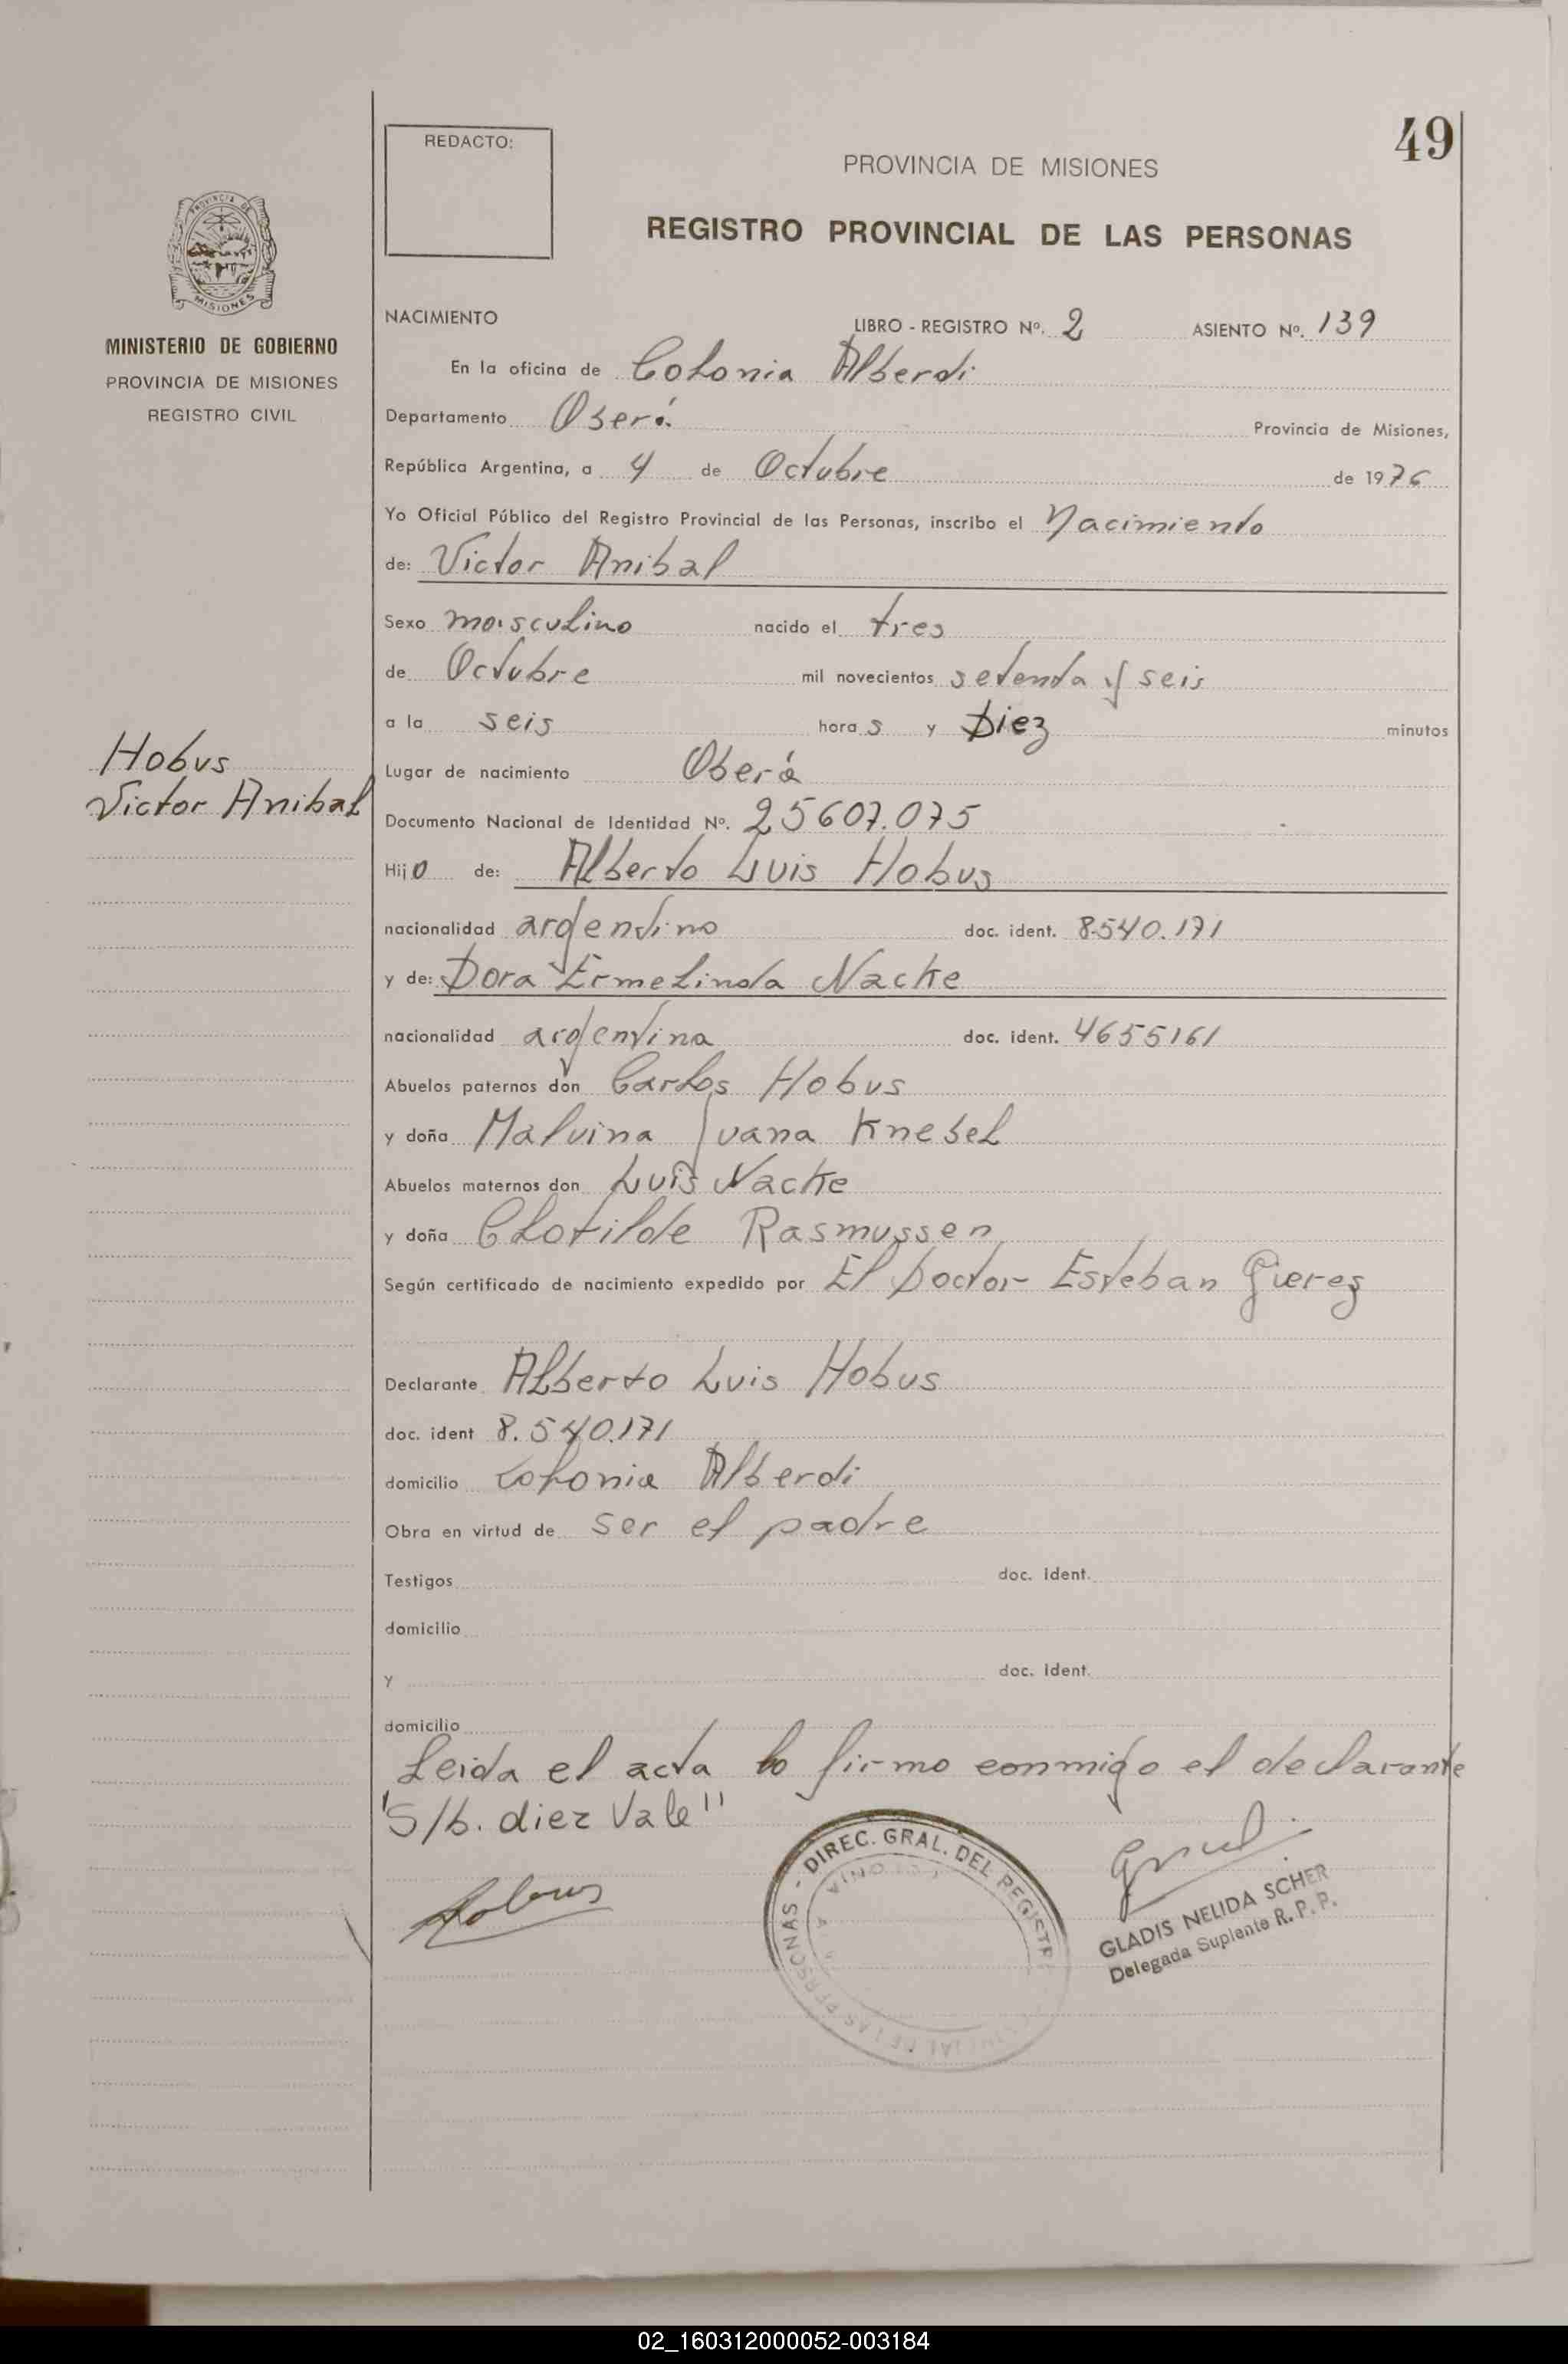 49
REDACTO:
PROVINCIA DE MISIONES
REGISTRO PROVINCIAL DE LAS PERSONAS
PROVINCIA DE
MISIONES
MINISTERIO DE GOBIERNO
PROVINCIA DE MISIONES
REGISTRO CIVIL
Hobus
Victor Anibal
NACIMIENTO LIBRO - REGISTRO Nº. 2 ASIENTO Nº. 139
En la oficina de Colonia Alberdi
Departamento Oberá Provincia de Misiones,
República Argentina, a 4 de Octubre de 1976
Yo Oficial Público del Registro Provincial de las Personas, inscribo el Nacimiento
de: Victor Anibal
Sexo masculino nacido el tres
de Octubre mil novecientos setenta y seis
a la seis hora s y Diez minutos
Lugar de nacimiento Oberá
Documento Nacional de Identidad Nº. 25607.075
Hijo de: Alberto Luis Hobus
nacionalidad argentino doc. ident. 8.540.171
y de: Dora Ermelinda Nacke
nacionalidad argentina doc. ident. 4655161
Abuelos paternos don Carlos Hobus
y doña Malvina Juana Knebel
Abuelos maternos don Luis Nacke
y doña Clotilde Rasmussen
Según certificado de nacimiento expedido por El Doctor Esteban Gierez
Declarante Alberto Luis Hobus
doc. ident 8.540.171
domicilio Colonia Alberdi
Obra en virtud de ser el padre
Testigos doc. ident.
domicilio
y doc. ident.
domicilio
Leida el acta lo firmo conmigo el declarante
"S/b. diez Vale"
Hobus
DIREC. GRAL. DEL REGISTR
DE LAS PERSONAS
GLADIS NELIDA SCHER
Delegada Suplente R. P. P.
02_160312000052-003184